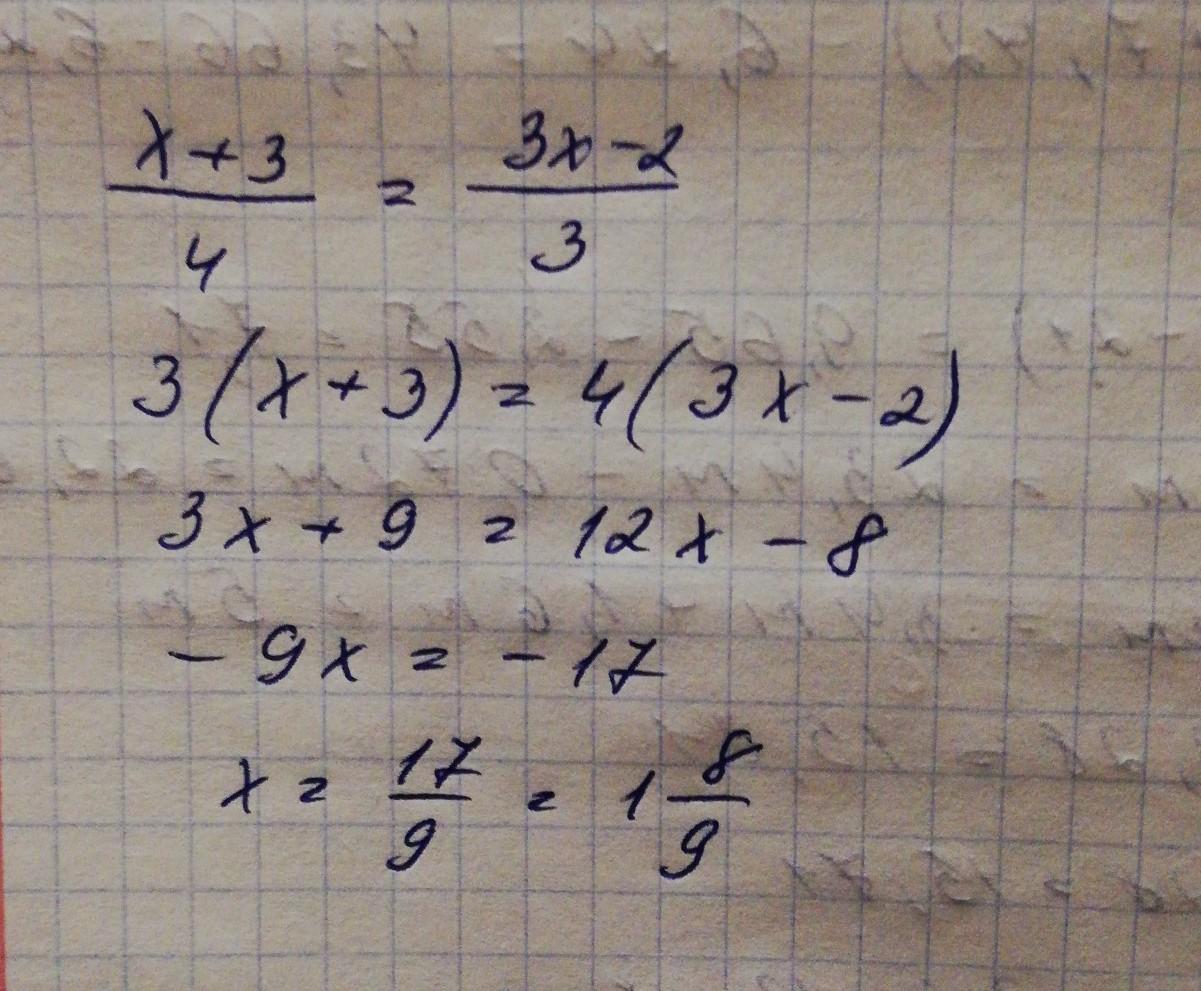 x+3/4 = 3x-2/3
3(x+3) = 4(3x-2)
3x+9 = 12x-8
-9x = -17
x = 17/9 = 1 8/9